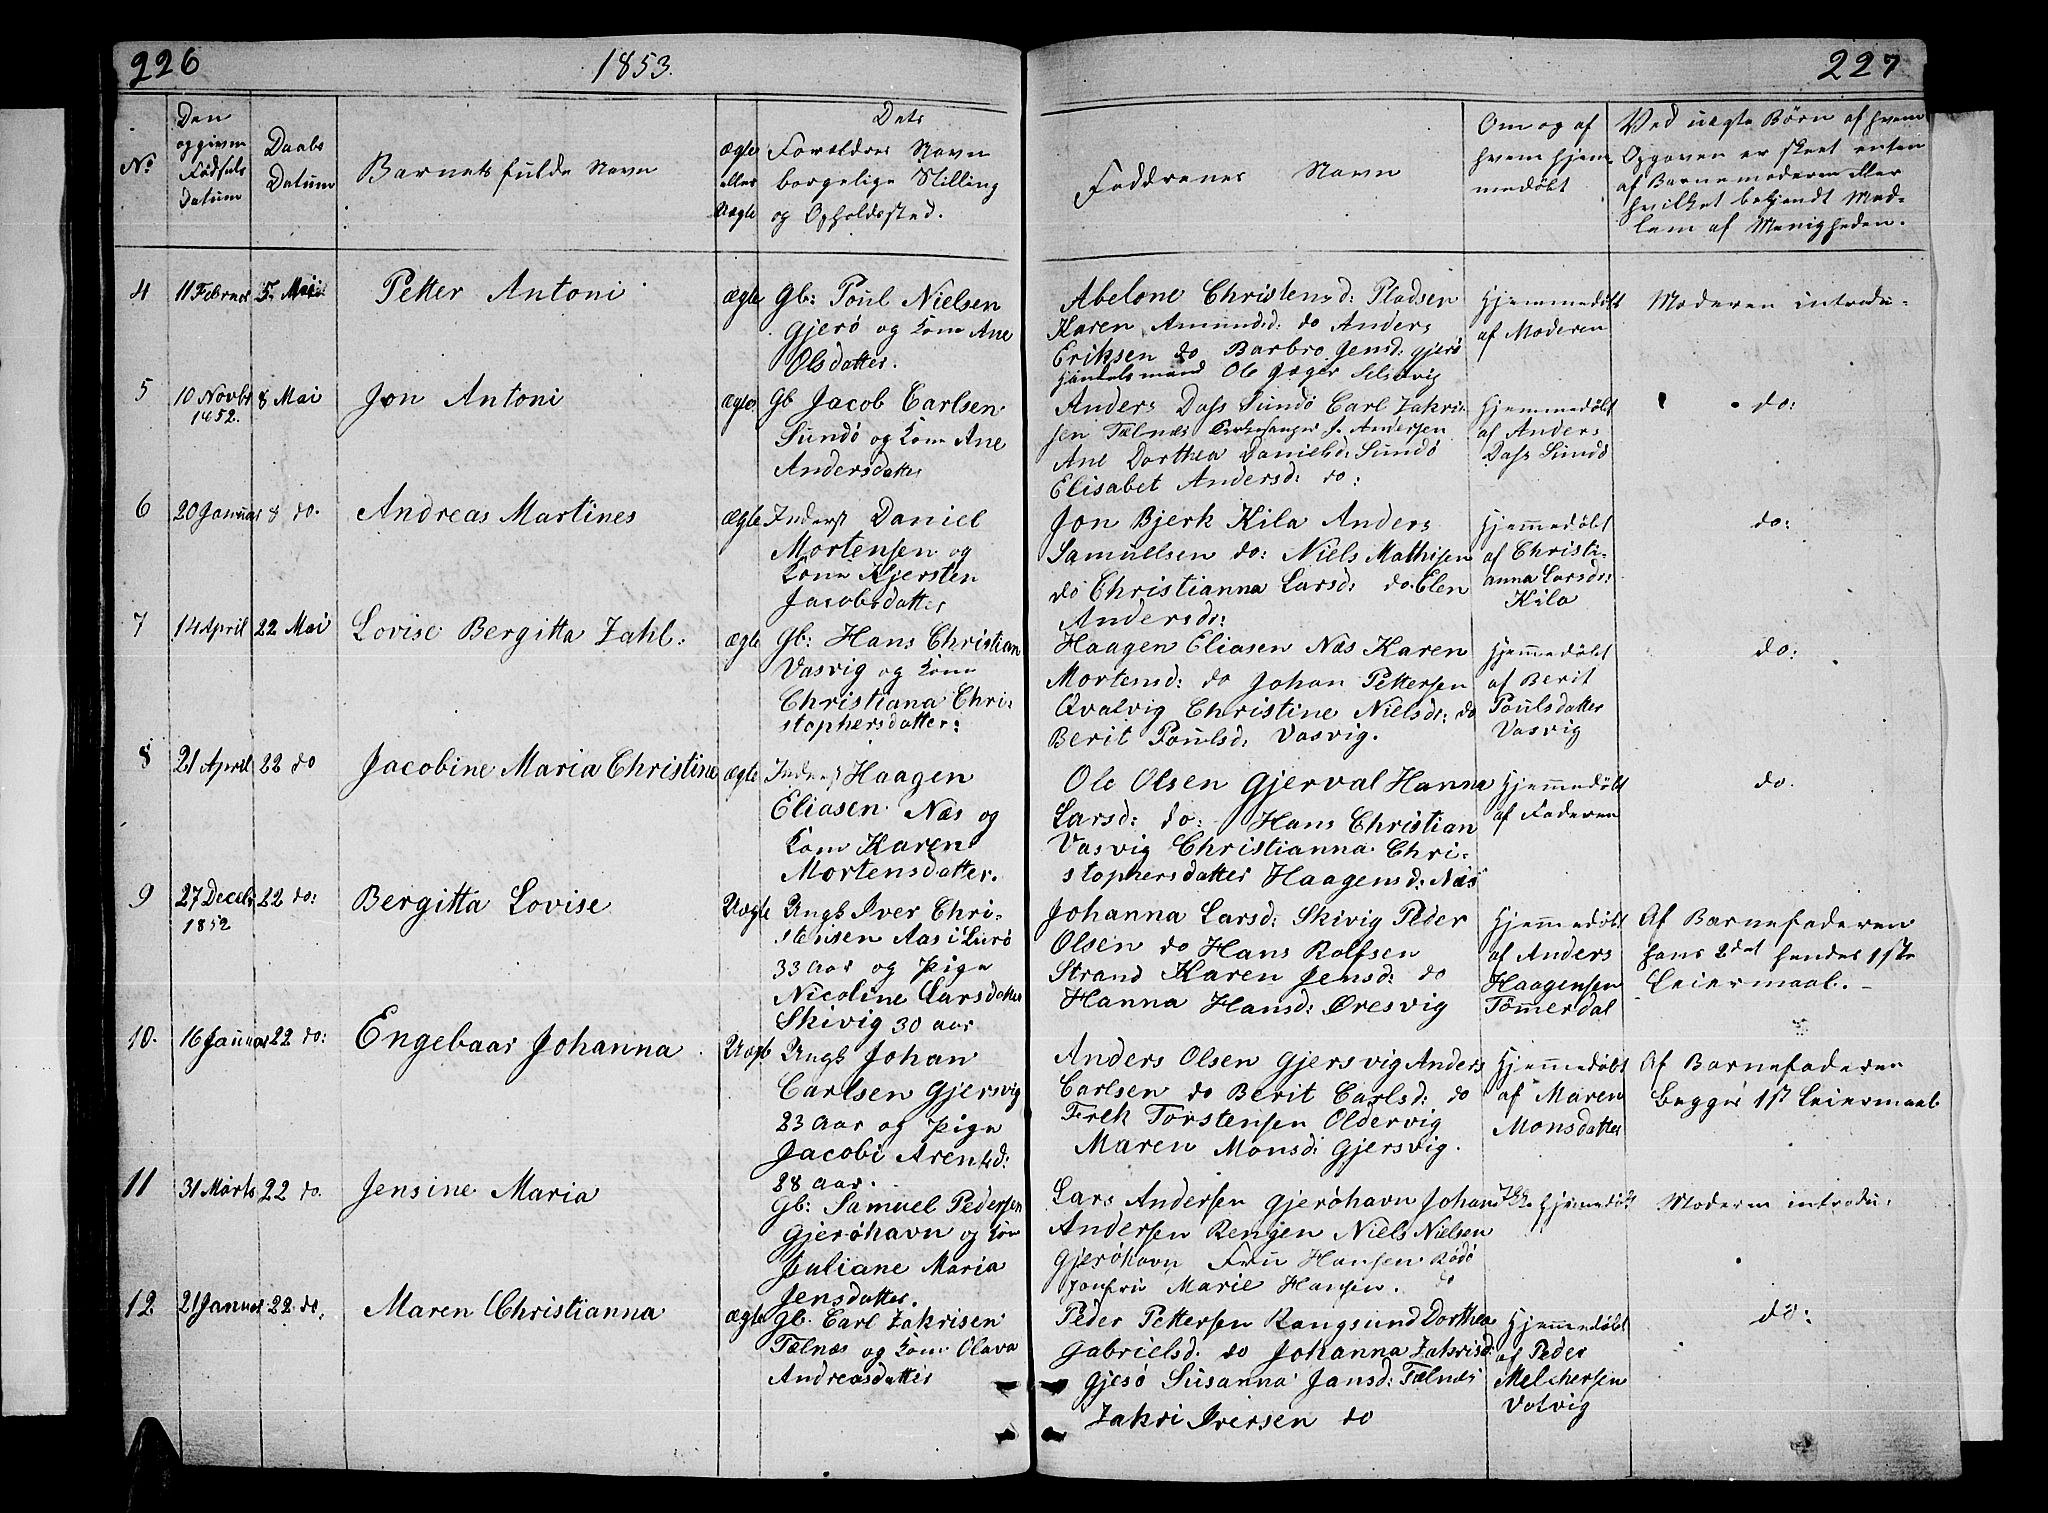 226
1853.
227
No
Den opgivne Fødsels Datum
Daabs Datum
Barnets fulde Navn
Ægte eller Uægte
Dets Forældres Navn borgelige Stilling og Opholdssted.
Faddrenes Navn
Om og af hvem hjem medøbt
Ved uægte Børn af hvem Opgaven er skeet enten af Barnemoderen eller hvilket bekjendt Med- lem af Menigheden.
4
11 Februar
5 Mai
Petter Antoni
Ægte
Gb: Poul Nielsen
Gjerø og Kone Ane
Olsdatter.
Abelone Christensd: Pladsen
Karen Amundsd: do Anders
Eriksen do Barbro Jensd: Gjerø
Handelsmand Ole Jæger Selsøvig
Hjemmedøbt
af Moderen
Moderen introdu-
5
10 Novbr
1852.
8 Mai
Jon Antoni
Ægte
Gb Jacob Carlsen
Sundø og Kone Ane
Andersdatter
Anders Dass Sundø Carl Zakri-
sen Tælnæs Kirkesanger J. Andersen
Ane Dorthea Danielsd: Sundø
Elisabet Andersd: do:
Hjemmedøbt
af Anders
Dass Sundø
do:
6
20 Januar
8 do.
Andreas Martines
Ægte
Inderst Daniel
Mortensen og
Kone Kjersten
Jacobsdatter
Jon Bjerk Kila Anders
Samuelsen do: Niels Mathisen
do Christianna Larsd: do: Elen
Andersd:
Hjemmedøbt
af Christi-
anna Larsd:
Kila
do:
7
14 April
22 Mai
Lovise Bergitta Zahl:
Ægte
Gb: Hans Christian
Vasvig og Kone
Christiana Chri-
stophersdatter:
Haagen Eliasen Næs Karen
Mortensd: do Johan Pettersen
Qvalvig Christine Nielsd: do
Berit Poulsd: Vasvig.
Hjemmedøbt
af Berit
Poulsdatter
Vasvig
do:
8
21 April
22 do
Jacobine Maria Christine
Ægte
Inderst Haagen
Eliasen Næs og
Kone Karen
Mortensdatter.
Ole Olsen Gjerval Hanna
Larsd: do: Hans Christian
Vasvig Christianna Chri-
stophersdatter Haagensd: Næs
Hjemmedøbt
af Faderen
do.
9
27 Decebr
1852
22 do:
Bergitta Lovise
Uægte
Ungk Iver Chri-
stensen Aas i Lurø
33 Aar og Pige
Nicoline Larsdatter
Skivig 30 aar
Johanna Larsd: Skivig Peder
Olsen do Hans Rolfsen
Strand Karen Jensd: do
Hanna Hansd: Øresvig
Hjemmedøbt
af Anders
Haagensen
Tømmerdal
Af Barnefaderen
hans 2det hendes 1ste
Leiermaal.
10.
16 Januar
22 do:
Engebaar Johanna
Uægte
Ungk Johan
Carlsen Gjersvig
23 Aar og Pige
Jacobi Arentsd:
28 aar.
Anders Olsen Gjersvig Anders
Carlsen do Berit Carlsd: do
Frek Torstensen Oldervig
Maren Monsd: Gjersvig.
Hjemmedøbt
af Maren
Monsdatter
Af Barnefaderen
begges 1st Leiermaal
11
31 Marts
22 do.
Jensine Maria
Gb: Samuel Pedersen
Gjerøhavn og Kone
Juliane Maria
Jensdatter.
Lars Andersen Gjerøhavn Johan
Andersen Rengen Niels Nielsen
Gjerøhavn Fru Hansen Rødø
Jomfru Marie Hansen. do
Ikke hjemmedøbt
Moderen introdu:
12
21 Januar
22 do.
Maren Christianna
Ægte
Gb. Carl Zakrisen
Tælnæs og Kone Olava
Andreasdatter
Peder Pettersen Rangsund Dorthea
Gabrielsd. do Johanna Zakrisd:
Gjesø Susanna Jansd: Tælnæs
Zakri Iversen do
Hjemmedøbt
af Peder
Melchersen
Votvig
do: